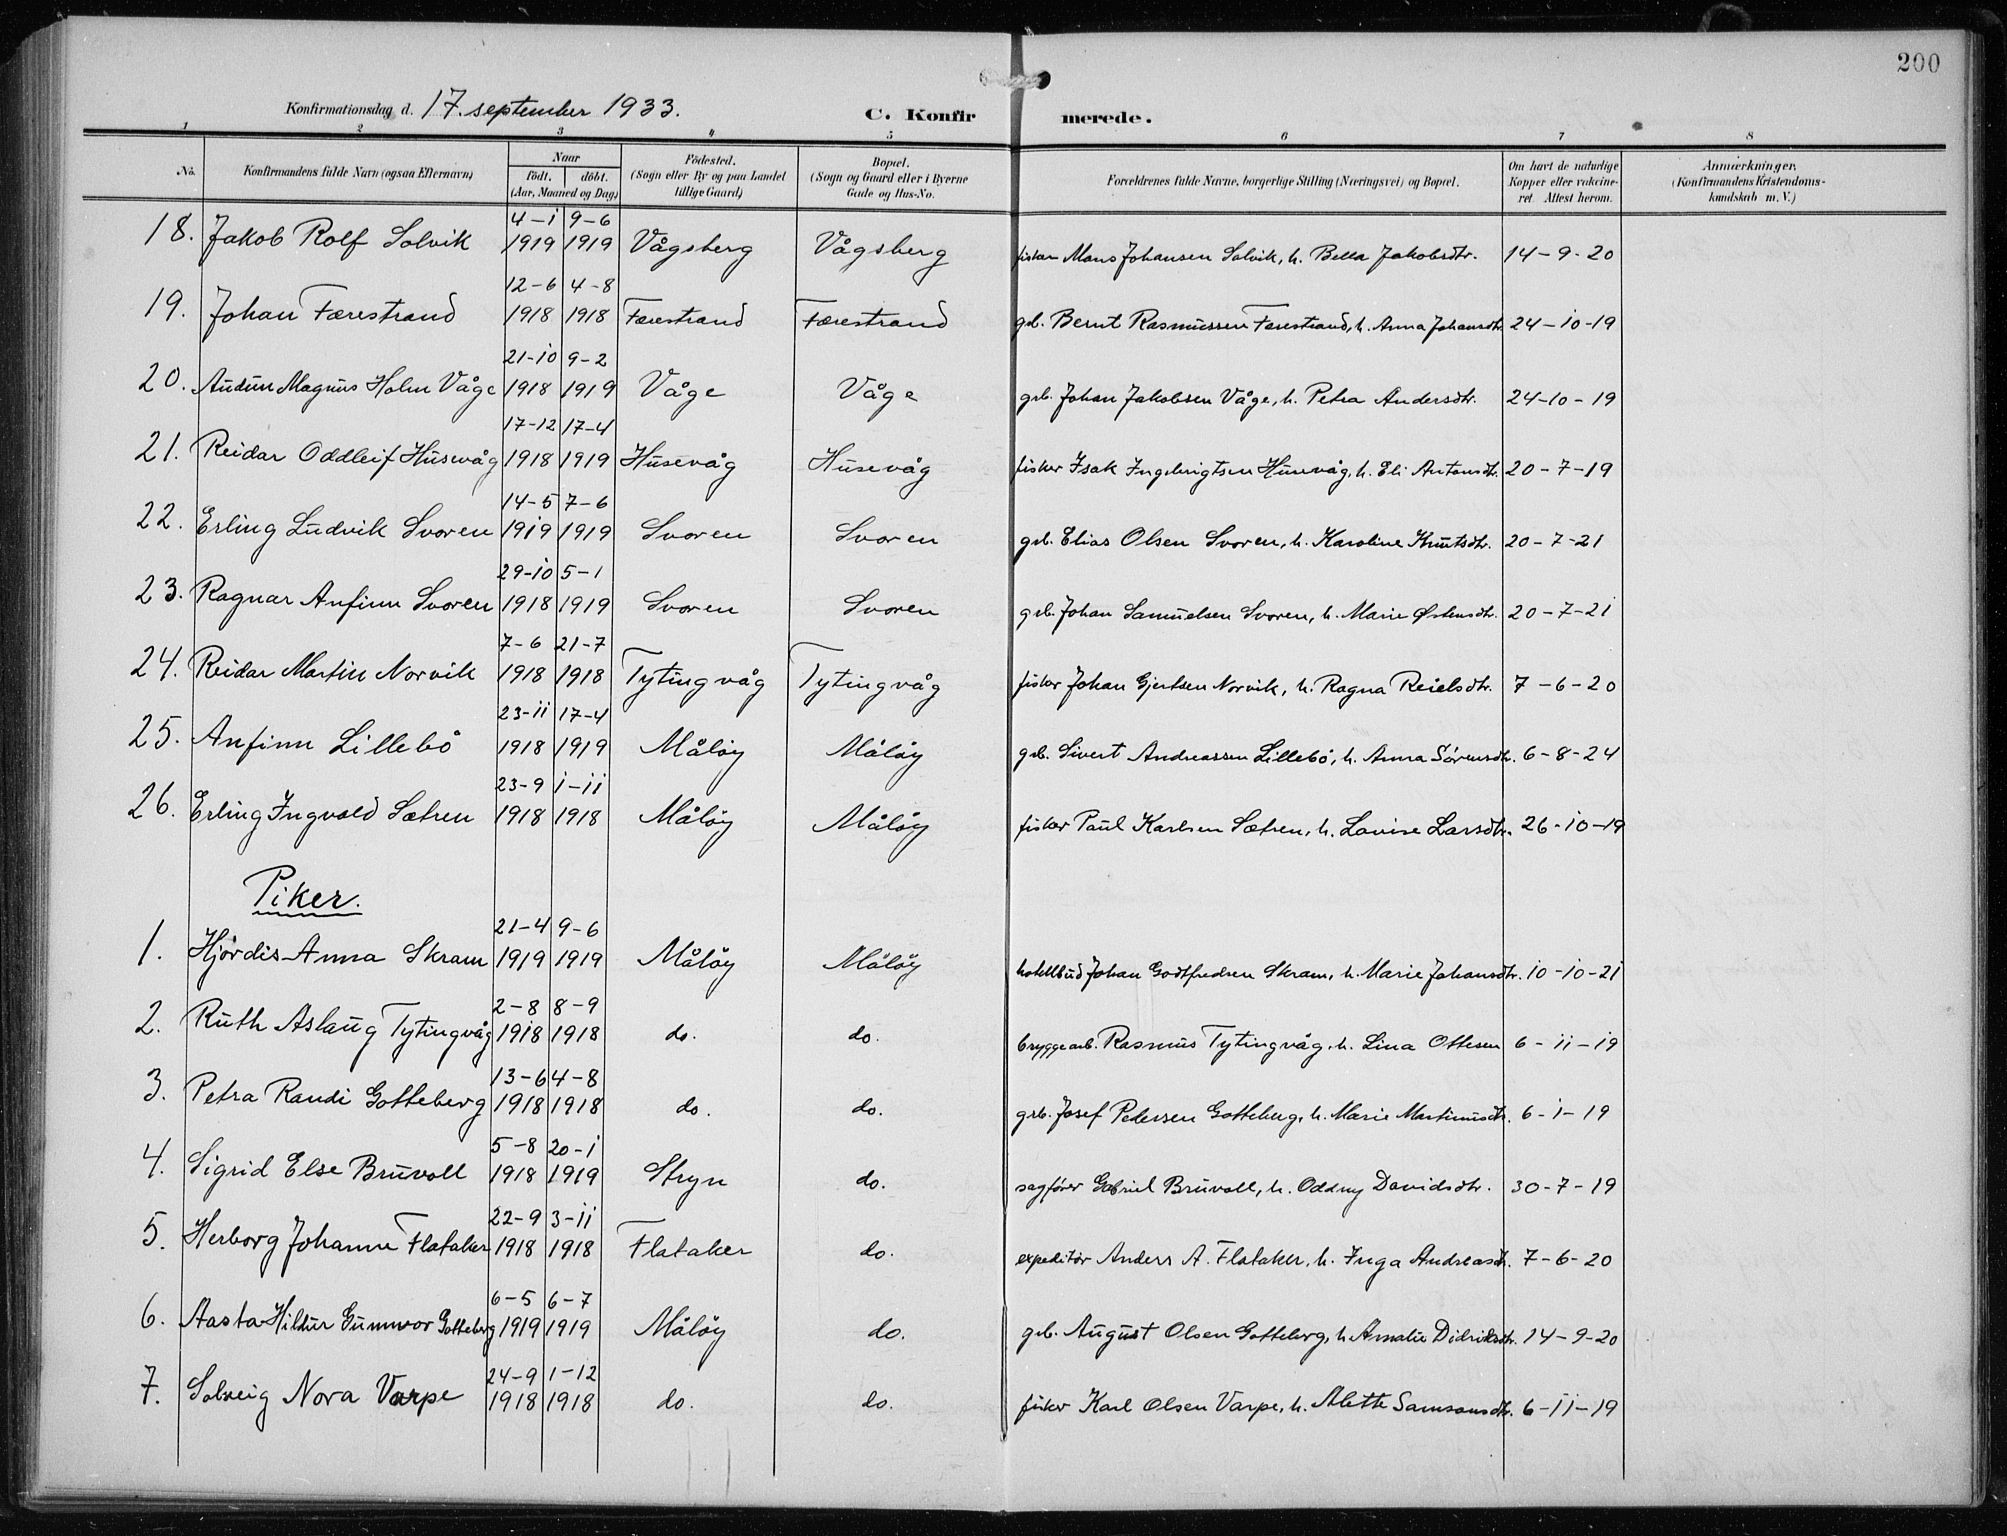 200
Konfirmationsdag d. 17. september 1933.
C. Konfirmerede.
1 2 3 4 5 6 7 8
No. Konfirmandens fulde Navn (ogsaa Efternavn) Naar Födt. döbt. (Aar, Maaned og Dag.) Födested. (Sogn eller By og paa Landet tillige Gaard) Bopæl. (Sogn og Gaard eller i Byerne Gade og Hus-No. Forældrenes fulde Navne, borgerlige Stilling (Næringsvei) og Bopæl. Om havt de naturlige Kopper eller vakcineret. Attest herom. Anmærkninger. (Konfirmandens Kristendomskundskab m. V.)
4-1 9-6
18. Jakob Rolf Solvik 1919 1919 Vågsberg Vågsberg fisker Mons Johansen Solvik, h. Bella Jakobsdtr. 14-9-20
12-6 4-8
19. Johan Færestrand 1918 1918 Færestrand Færestrand grb. Bernt Rasmussen Færestrand, h. Anna Johansdtr. 24-10-19
21-10 9-2
20. Audun Magnus Holm Våge 1918 1919 Våge Våge grb. Johan Jakobsen Våge, h. Petra Andersdtr. 24-10-19
17-12 17-4
21. Reidar Oddleif Husevåg 1918 1919 Husevåg Husevåg fisker Isak Ingebrigtsen Husevåg, h. Eli Antonsdtr. 20-7-19
14-5 7-6
22. Erling Ludvik Svoren 1919 1919 Svoren Svoren grb. Elias Olsen Svoren, h. Karoline Knutsdtr. 20-7-21
29-10 5-1
23. Ragnar Anfinn Svoren 1918 1919 Svoren Svoren grb. Johan Samuelsen Svoren, h. Marie Østensdtr. 20-7-21
7-6 21-7
24. Reidar Martin Norvik 1918 1918 Tytingvåg Tytingvåg fisker Johan Gjertsen Norvik, h. Ragna Reielsdtr. 7-6-20
23-11 17-4
25. Anfinn Lillebö 1918 1919 Målöy Målöy grb. Sivert Andreassen Lillebö, h. Anna Sörensdtr. 6-8-24
23-9 1-11
26. Erling Ingvald Sætren 1918 1918 Målöy Målöy fisker Paul Karlsen Sætren, h. Lovise Larsdtr. 26-10-19
Piker.
21-4 9-6
1. Hjördis Anna Skram 1919 1919 Målöy Målöy hotellbud Johan Godtfredsen Skram, h. Marie Johansdtr. 10-10-21
2-8 8-9
2. Ruth Aslaug Tytingvåg 1918 1918 do. do. bryggearb. Rasmus Tytingvåg, h. Lina Ottesen 6-11-19
13-6 4-8
3. Petra Randi Gotteberg 1918 1918 do. do. grb. Josef Pedersen Gotteberg, h. Marie Martinusdtr. 6-1-19
5-8 20-1
4. Sigrid Else Bruvoll 1918 1919 Stryn do. sagförer Gabriel Bruvoll, h. Oddny Davidsdtr. 30-7-19
22-9 3-11
5. Herborg Johanne Flataker 1918 1918 Flataker do. expeditör Anders A. Flataker, h. Inga Andreasdtr. 7-6-20
6-5 6-7
6. Aasta Hildur Gunnvor Gotteberg 1919 1919 Målöy do. grb. August Olsen Gotteberg, h. Amalie Didriksdtr. 14-9-20
24-9 1-12
7. Solveig Nora Varpe 1918 1918 do. do. fisker Karl Olsen Varpe, h. Alette Samsonsdtr. 6-11-19